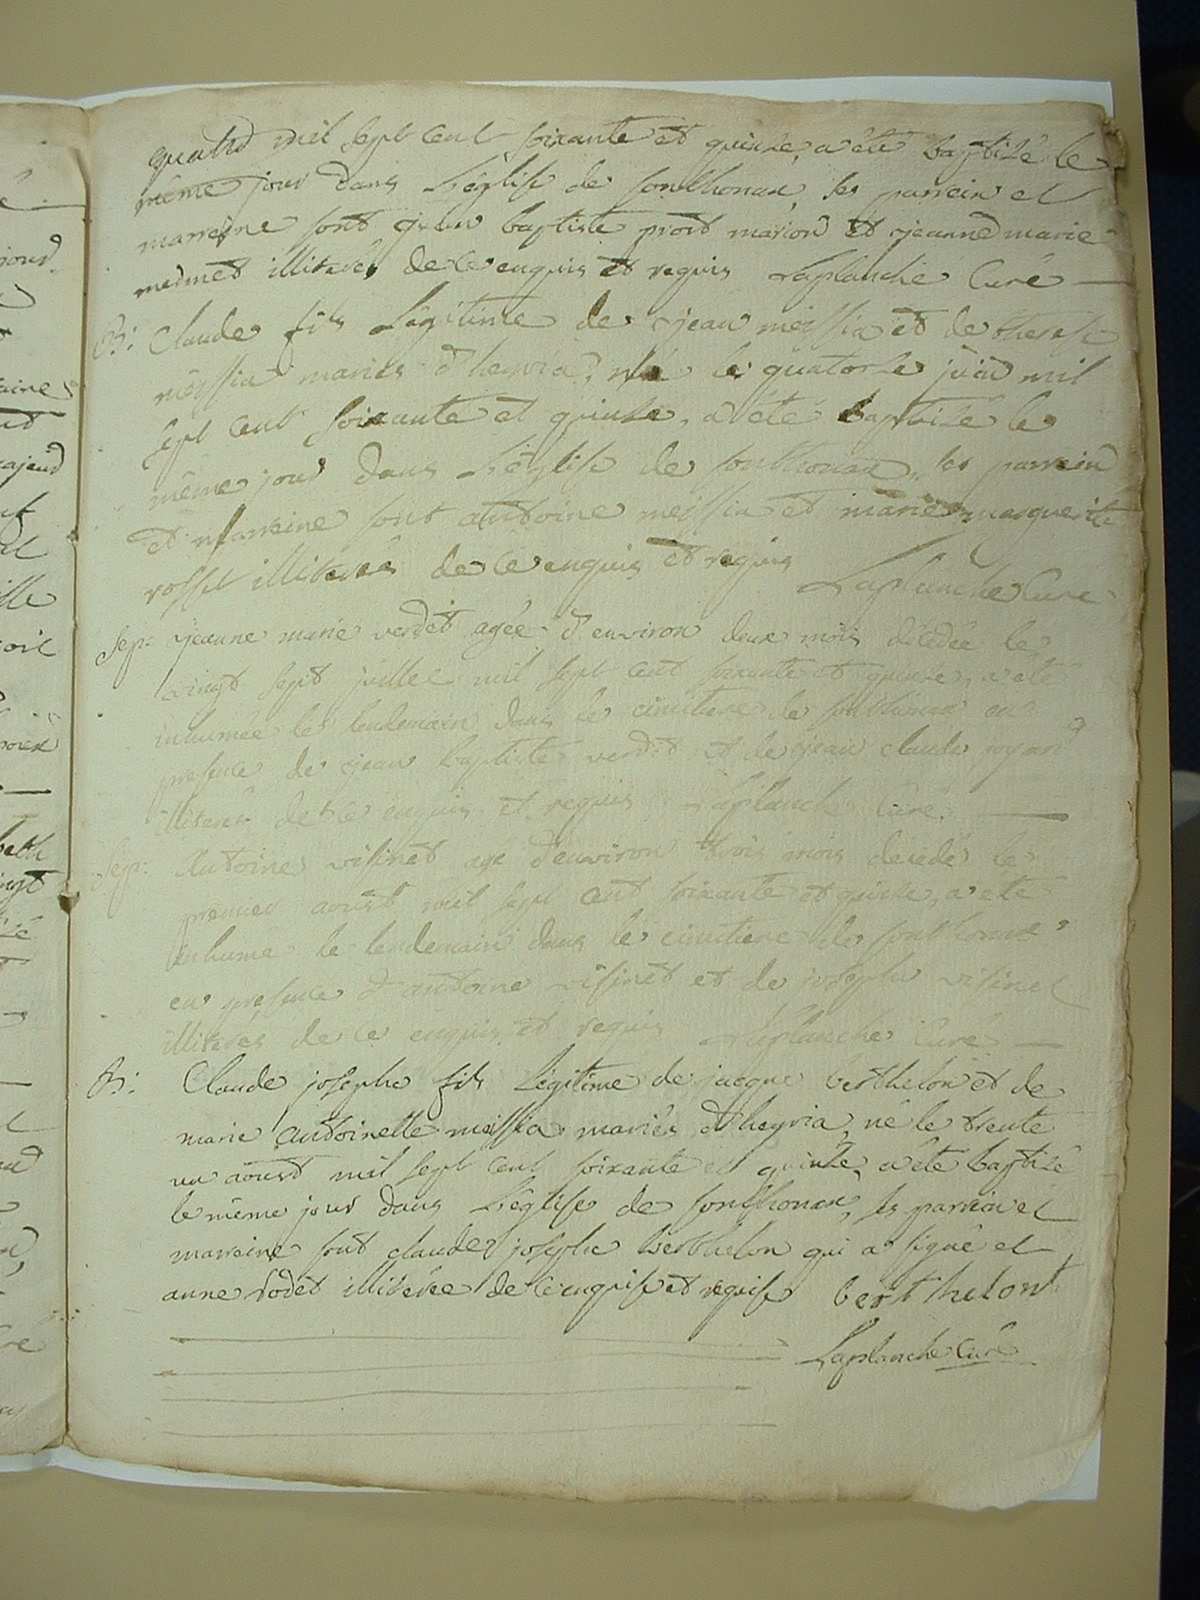 quatre mil sept cent soixante et quinze, a été baptizé le
même jour dans L'église de sonthonax, ses parrein et
marreine sont jean baptiste prost marion et jeanne marie
mermet illiterés de ce enquis et requis Laplanche Curé
B: Claude fils Légitime de jean meissia et de therese
meissia mariés d'heyria, né le quatorze juin mil
sept cent soixante et quinze, a été baptizé le
même jour dans L'église de sonthonax, ses parrein
et marreine sont antoine meissia et marie marguerite
rosset illiterés de ce enquis et requis Laplanche Curé
Sep: jeanne marie verdet agée d'environ deux mois décédée le
vingt sept juillet mil sept cent soixante et quinze, a été
inhumée le lendemain dans le cimetiere de sonthonax en
presence de jean baptiste verdet et de jean claude
illiterés de ce enquis et requis Laplanche Curé.
Sep: Antoine visinet agé d'environ trois mois décédé le
premier aoust mil sept cent soixante et quinze, a été
inhumé le lendemain dans le cimetiere de sonthonax
en presence d'antoine visinet et de joseph visinet
illiterés de ce enquis et requis Laplanche Curé
B: Claude josephe fils Légitime de jacque berthelon et de
marie antoinette meissia mariés d'heyria, né le trente
un aoust mil sept cent soixante et quinze, a été baptizé
le même jour dans L'église de sonthonax, ses parrein et
marreine sont claude josephe berthelon qui a signé et
anne rodet illiterée de ce enquise et requise berthelont
Laplanche Curé